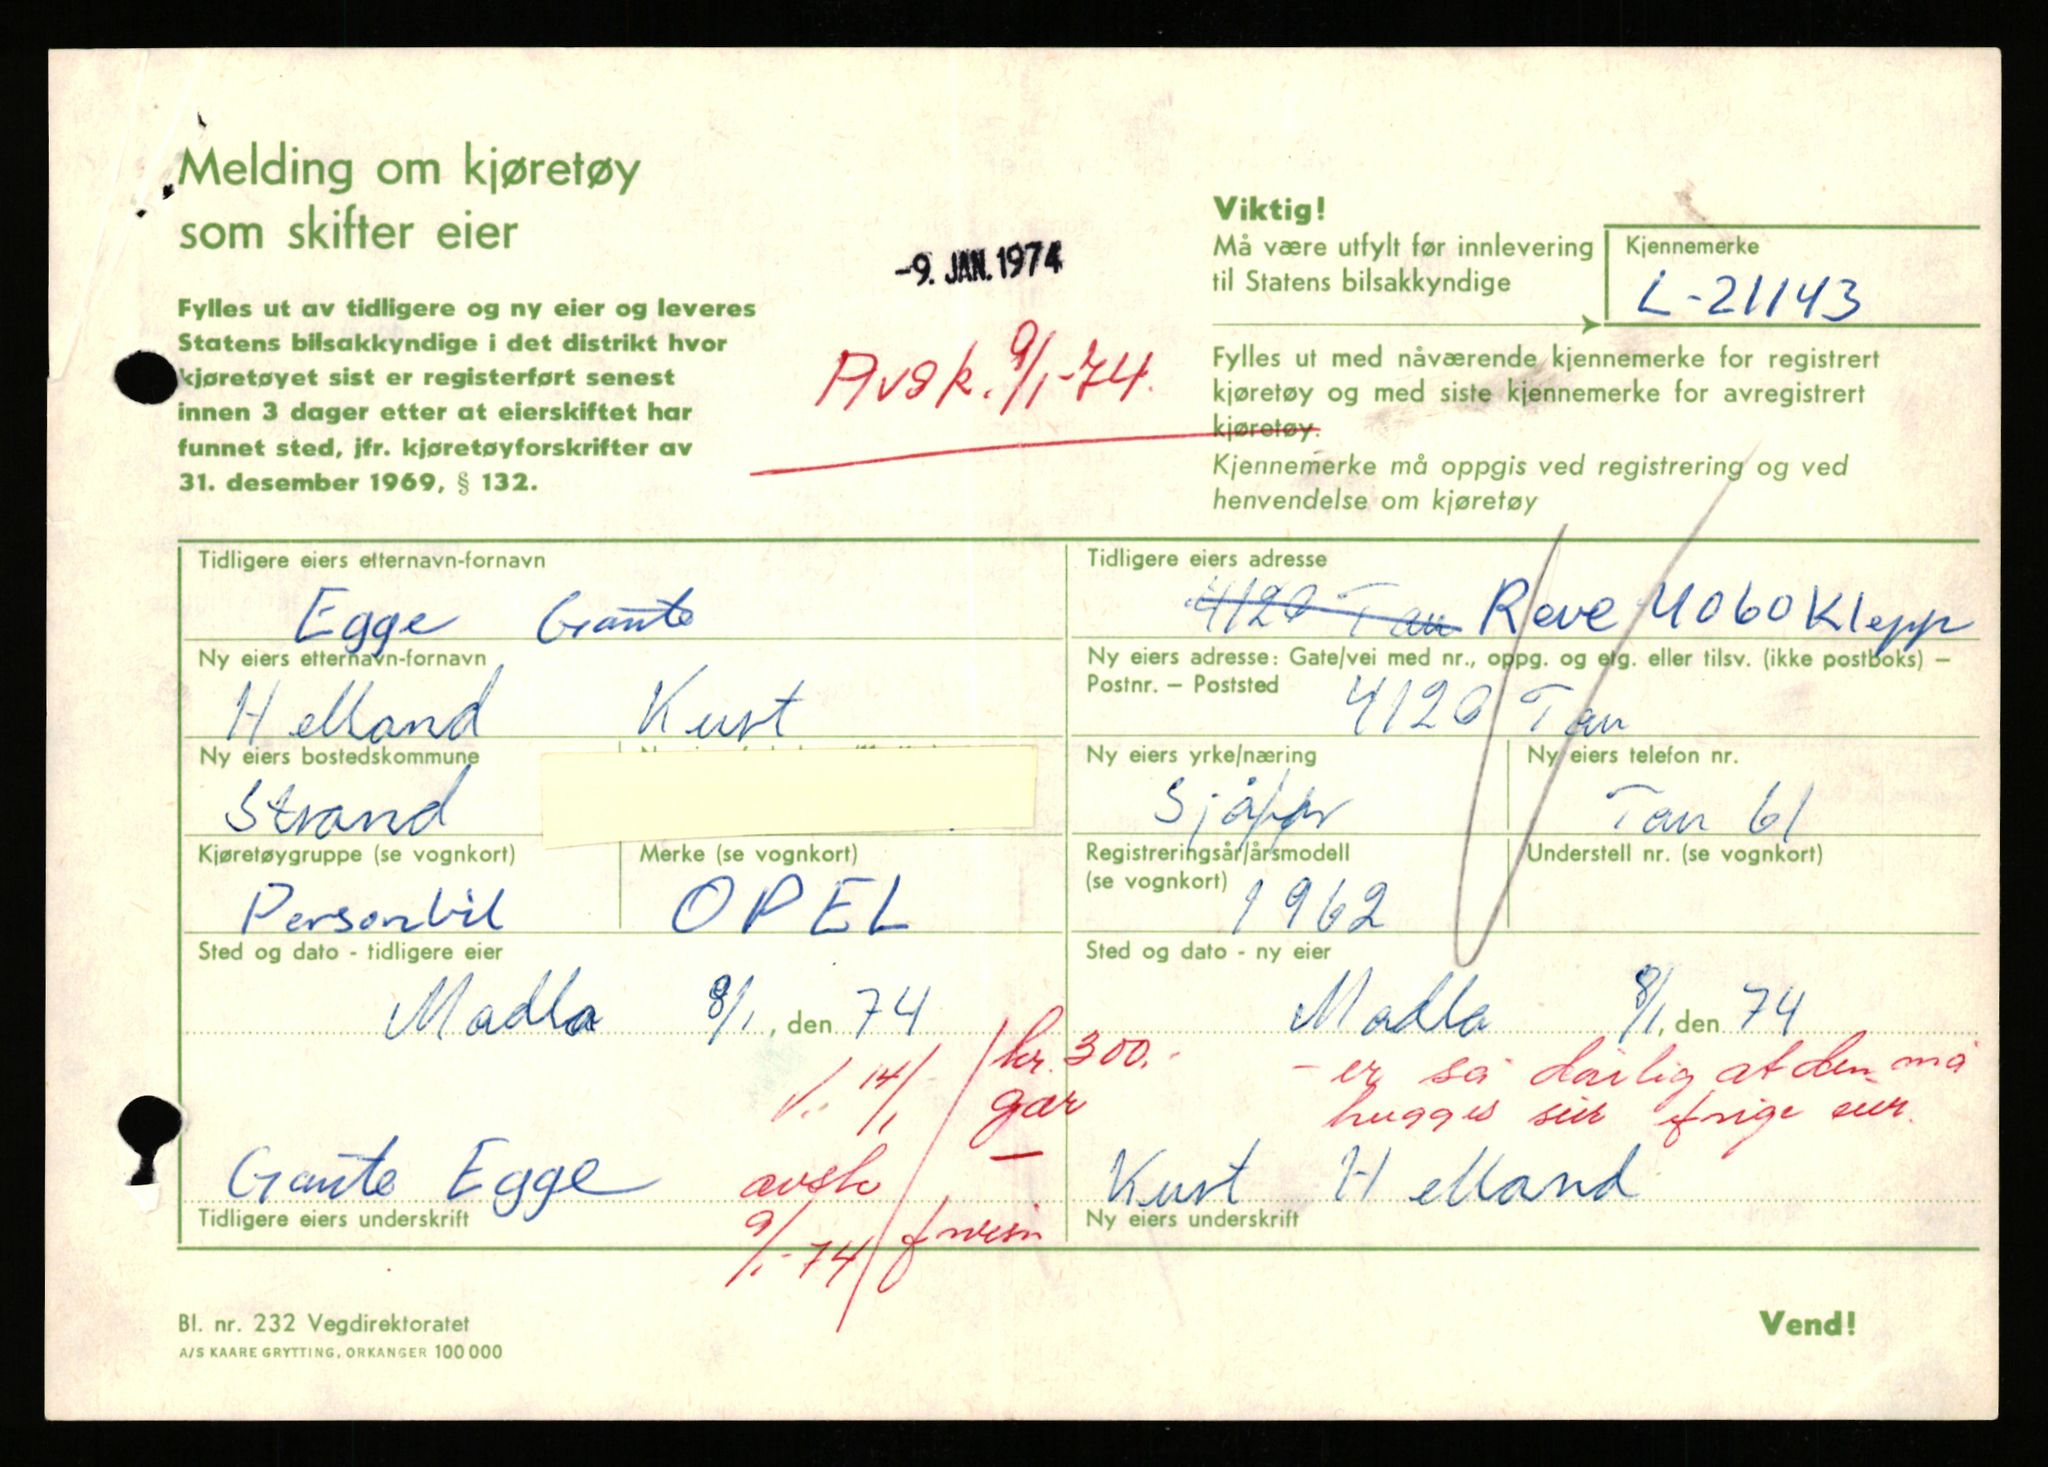 Melding om kjøretøy
som skifter eier
Fylles ut av tidligere og ny eier og leveres
Statens bilsakkyndige i det distrikt hvor
kjøretøyet sist er registerført senest
innen 3 dager etter at eierskiftet har
funnet sted, jfr. kjøretøyforskrifter av
31. desember 1969, § 132.
-9. JAN. 1974
Avsk. 9/1-74.
Viktig!
Må være utfylt før innlevering
til Statens bilsakkyndige
Kjennemerke
L-21143
Fylles ut med nåværende kjennemerke for registrert
kjøretøy og med siste kjennemerke for avregistrert
kjøretøy.
Kjennemerke må oppgis ved registrering og ved
henvendelse om kjøretøy
Tidligere eiers etternavn-fornavn
Egge Gaute
Tidligere eiers adresse
4120 Tau Reve 4060 Klepp
Ny eiers etternavn-fornavn
Helland Kurt
Ny eiers adresse: Gate/vei med nr., oppg. og etg. eller tilsv. (ikke postboks) –
Postnr. – Poststed
4120 Tau
Ny eiers bostedskommune
Strand
Ny eiers yrke/næring
Sjåfør
Ny eiers telefon nr.
Tau 61
Kjøretøygruppe (se vognkort)
Personbil
Merke (se vognkort)
OPEL
Registreringsår/årsmodell
(se vognkort)
1962
Understell nr. (se vognkort)
Sted og dato - tidligere eier
Madla 8/1, den 74
Sted og dato - ny eier
Madla 8/1, den 74
14/1
kr. 300.-
gar
- er så dårlig at den må
hugges
Gaute Egge
avsk
9/1-74
Tidligere eiers underskrift
Kurt Helland
Ny eiers underskrift
Bl. nr. 232 Vegdirektoratet
A/S KAARE GRYTTING, ORKANGER 100 000
Vend!